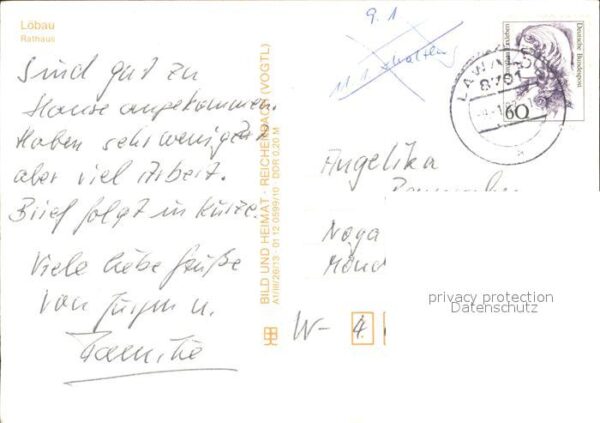 Löbau
Rathaus
Sind gut zu
Hause angekommen.
Haben sehr wenig Zeit
aber viel Arbeit.
Brief folgt in Kürze.
Viele liebe Grüße
von Jürgen u.
Familie
9.1
11.1 erhalten
Deutsche Bundespost
60
8701
BILD UND HEIMAT · REICHENBACH (VOGTL)
A1/III/26/13 · 01 12 0599/10 DDR 0,20 M
Angelika
Noga
W- 4
privacy protection
Datenschutz